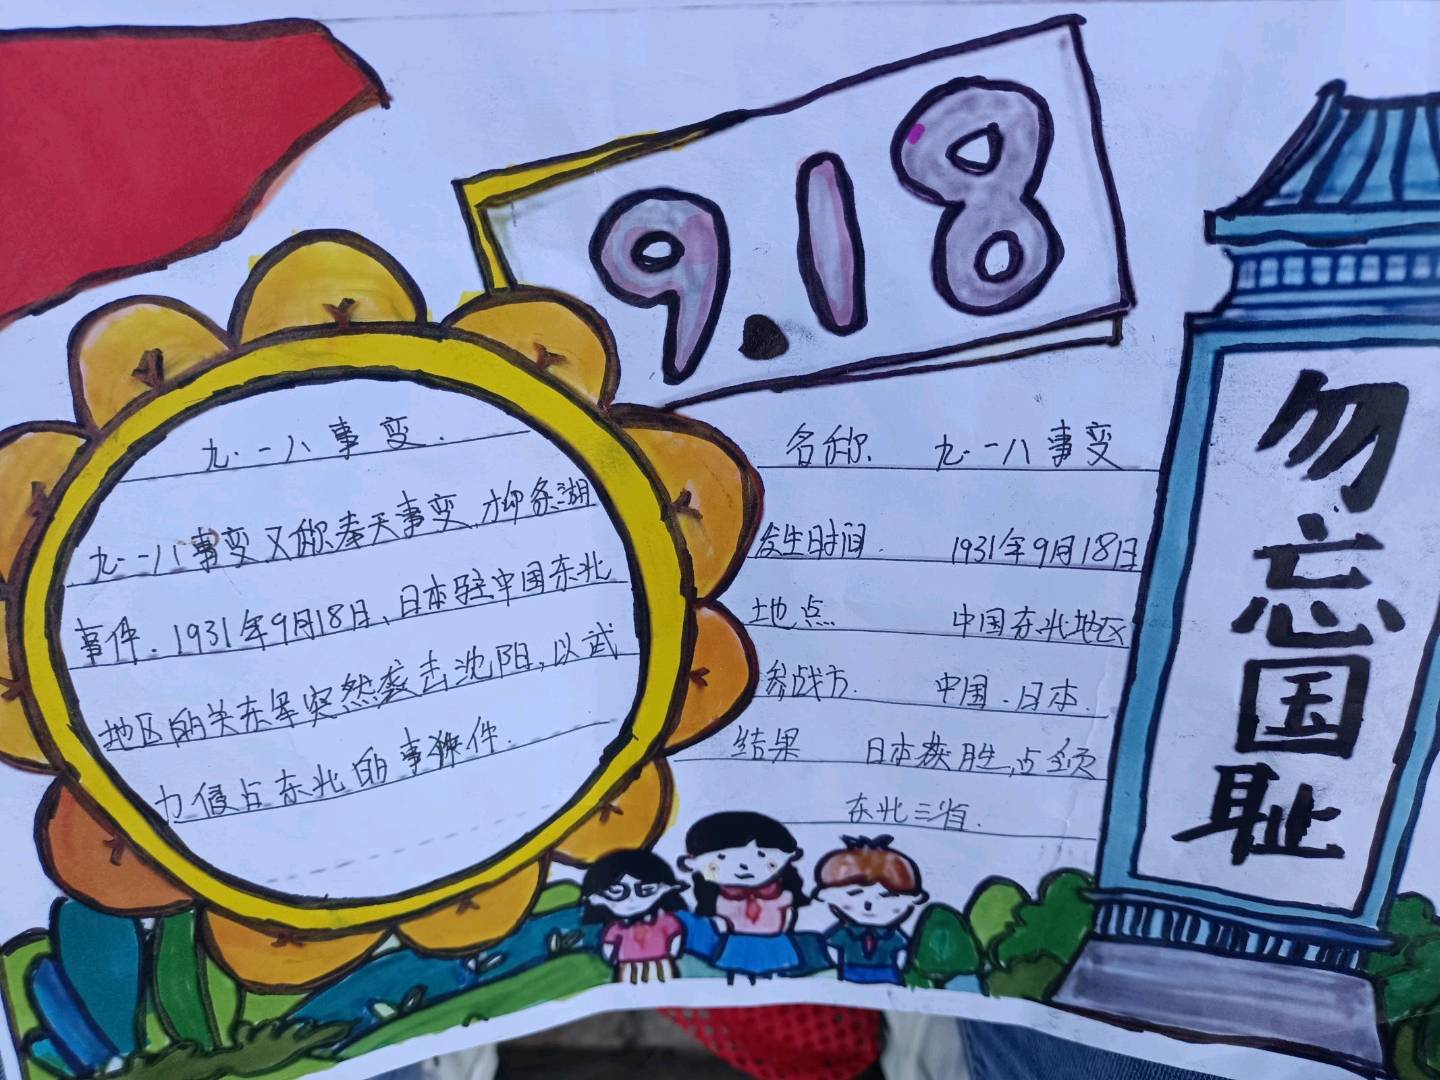 9.18
九·一八事变.
九·一八事变又称奉天事变,柳条湖
事件.1931年9月18日,日本驻中国东北
地区的关东军突然袭击沈阳,以武
力侵占东北的事件.
名称 九·一八事变
发生时间. 1931年9月18日
地点 中国东北地区
参战方. 中国.日本.
结果 日本获胜,占领
东北三省.
勿忘国耻